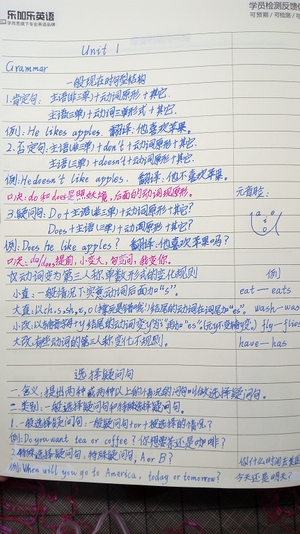 乐加乐英语
学员检测反馈
Unit 1
Grammar
一般现在时句型结构
1.肯定句：主语(非三单)+动词原形+其它.
主语(三单)+动词三单形式+其它.
例：He likes apples. 翻译：他喜欢苹果。
2.否定句：主语(非三单)+don't+动词原形+其它.
主语(三单)+doesn't+动词原形+其它.
例：He doesn't like apples. 翻译：他不喜欢苹果。
口决：do和does是照妖镜，后面的动词现原形。
元音脸：
a e i o u
3.疑问句：Do+主语(非三单)+动词原形+其它?
Does+主语(三单)+动词原形+其它?
例：Does he like apples? 翻译：他喜欢苹果吗?
口决：do/does提前，大变小，句变问，我变你。
实义动词变为第三人称单数形式的变化规则
例
小直：一般情况下实意动词后面加"s"。
eat—eats
大直：以ch,s,sh,x,o结尾的动词在词尾加"es"。
wash—was
小改：以辅音字母+y结尾的动词变y为i加"es"
fly—flies
大改：有些动词的第三人称变化不规则。
have—has
选择疑问句
一.含义：提出两种或两种以上的情况的问句叫做选择疑问句。
二.类别：一般选择疑问句和特殊选择疑问句。
1.一般选择疑问句：一般疑问句+or+被选择的情况?
例：Do you want tea or coffee? 你想要茶还是咖啡?
2.特殊选择疑问句：特殊疑问句，A or B?
你什么时间去美国
例：When will you go to America, today or tomorrow?
今天还是明天?